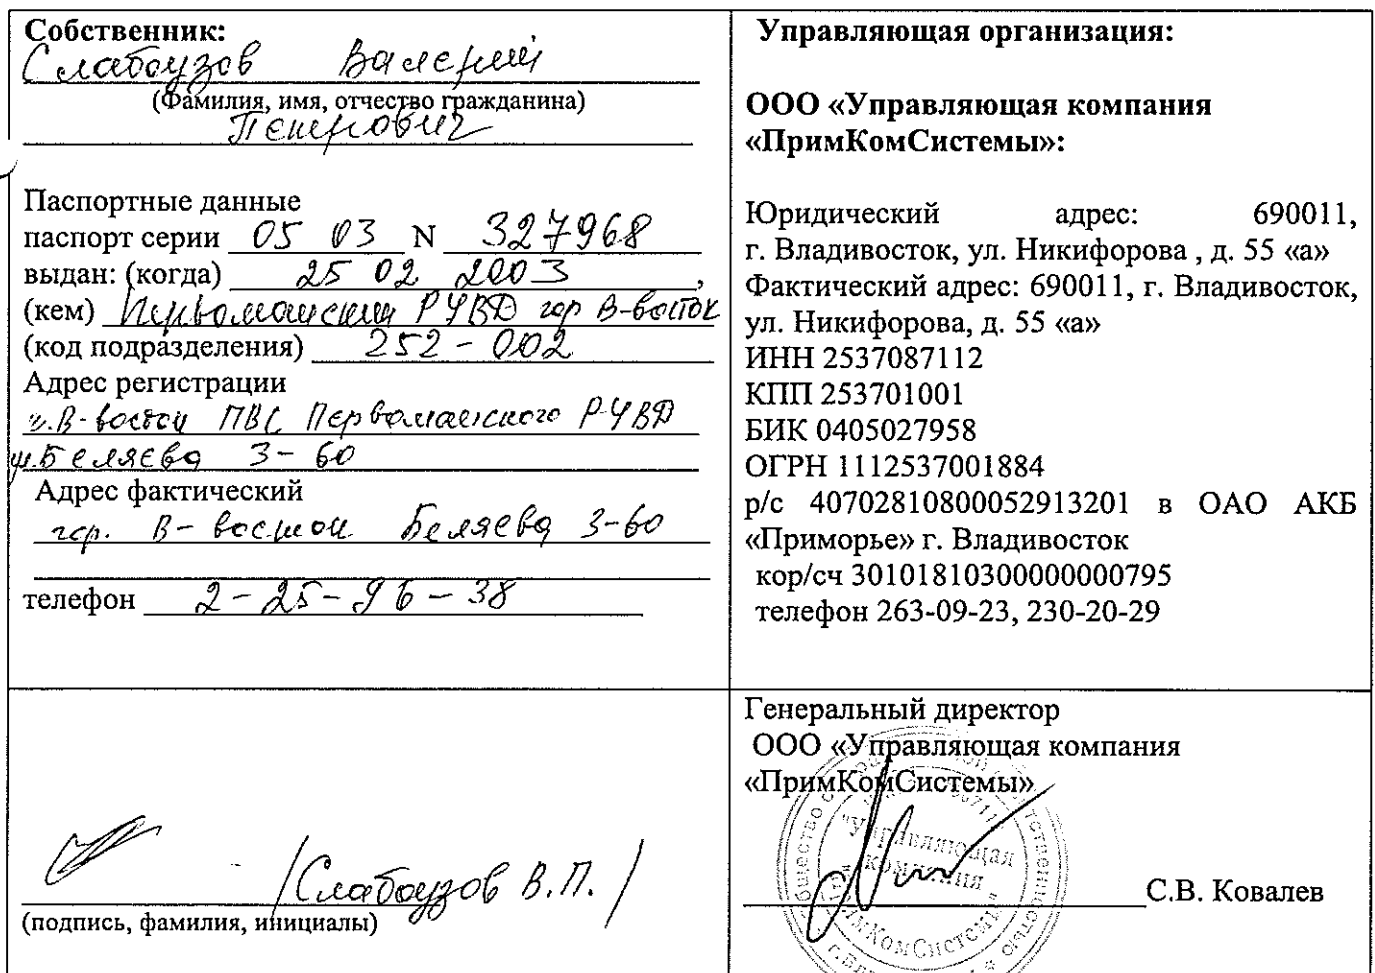 Собственник:
Слабоузов Валерий
(Фамилия, имя, отчество гражданина)
Петрович
Паспортные данные
паспорт серии 05 03 N 327968
выдан: (когда) 25 02 2003,
(кем) Первомайским РУВД гор В-восток
(код подразделения) 252-002
Адрес регистрации
г. В-восток ПВС Первомайского РУВД
ул. Беляева 3-60
Адрес фактический
гор. В-восток Беляева 3-60
телефон 2-25-96-38
(подпись, фамилия, инициалы)
/Слабоузов В.П./
Управляющая организация:
ООО «Управляющая компания
«ПримКомСистемы»:
Юридический адрес: 690011,
г. Владивосток, ул. Никифорова , д. 55 «а»
Фактический адрес: 690011, г. Владивосток,
ул. Никифорова, д. 55 «а»
ИНН 2537087112
КПП 253701001
БИК 0405027958
ОГРН 1112537001884
р/с 40702810800052913201 в ОАО АКБ
«Приморье» г. Владивосток
кор/сч 30101810300000000795
телефон 263-09-23, 230-20-29
Генеральный директор
ООО «Управляющая компания
«ПримКомСистемы»
С.В. Ковалев
"Управляющая
компания
"ПримКомСистемы"